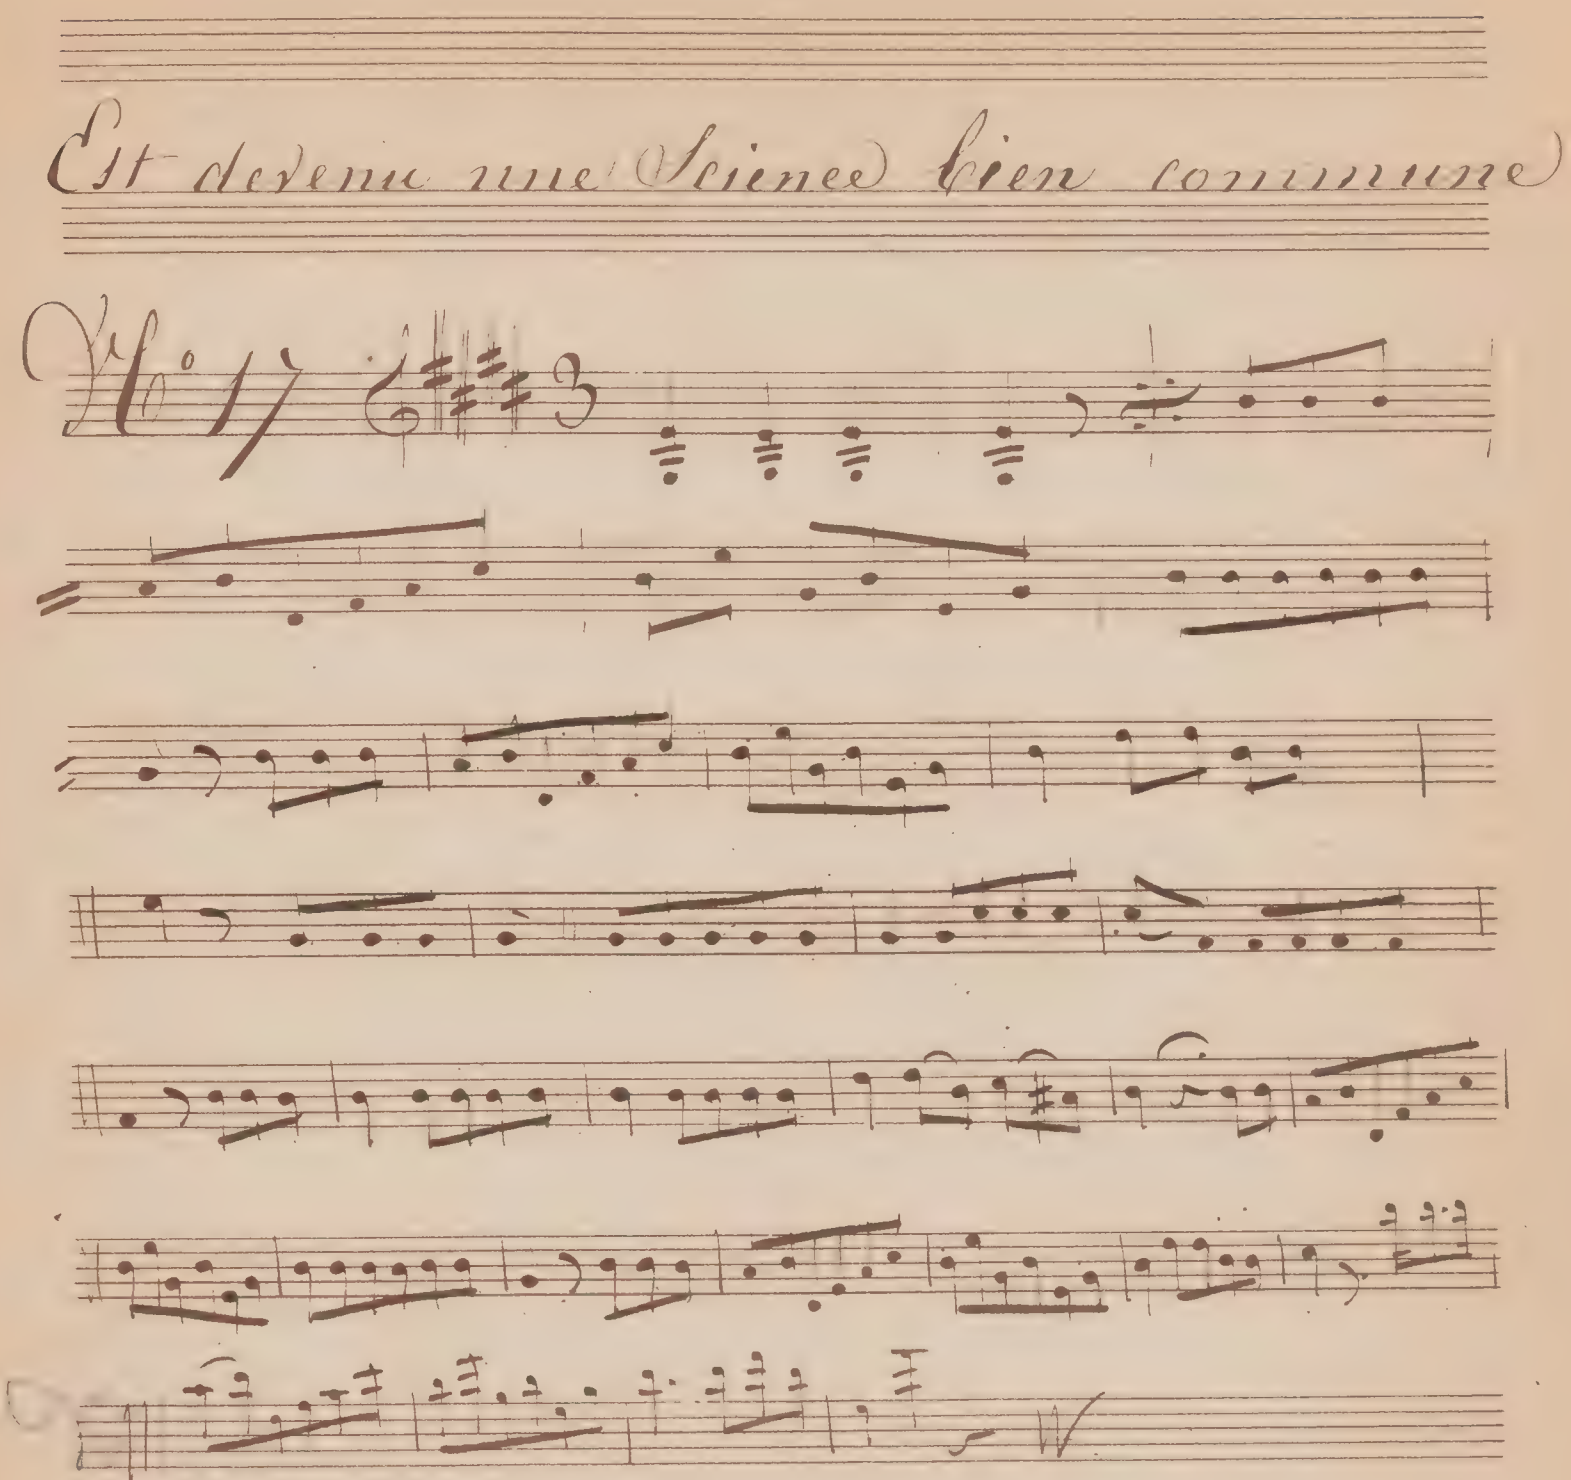 Est devenu une Science bien commune
N.º 17
3